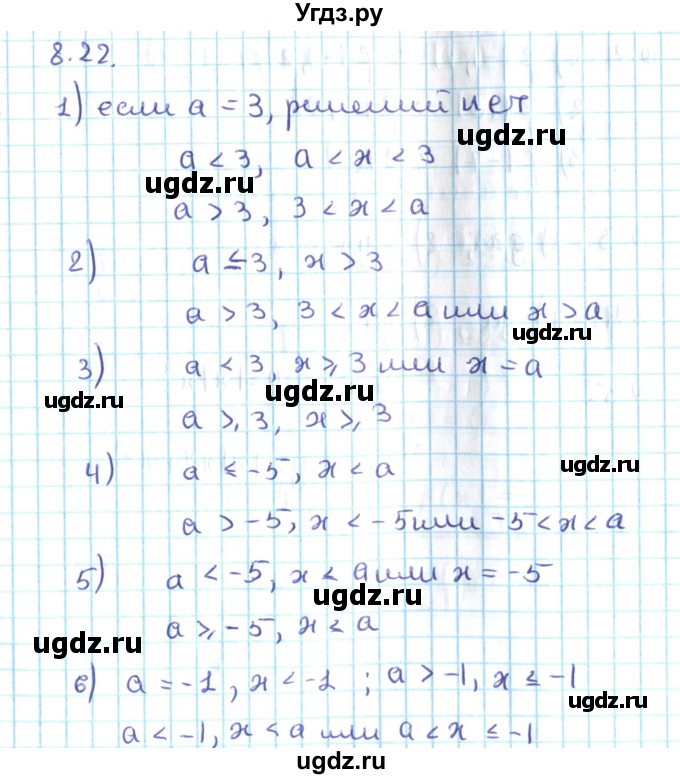 Угдз.ру
8.22.
1) если a = 3, решений нет
ugdz.ru
a < 3, a < x < 3
ugdz.ru
a > 3, 3 < x < a
2) a ≤ 3, x > 3
a > 3, 3 < x < a или x > a
ugdz.ru
3) a < 3, x ⩾ 3 или x = a
ugdz.ru
ugdz.ru
a ⩾ 3, x ⩾ 3
4) a ≤ -5, x < a
ugdz.ru
a > -5, x < -5 или -5 < x < a
5) a < -5, x < a или x = -5
ugdz.ru
a ⩾ -5, x < a
ugdz.ru
6) a = -1, x < -1 ; a > -1, x ≤ -1
ugdz.ru
a < -1, x < a или a < x ≤ -1
ugdz.ru